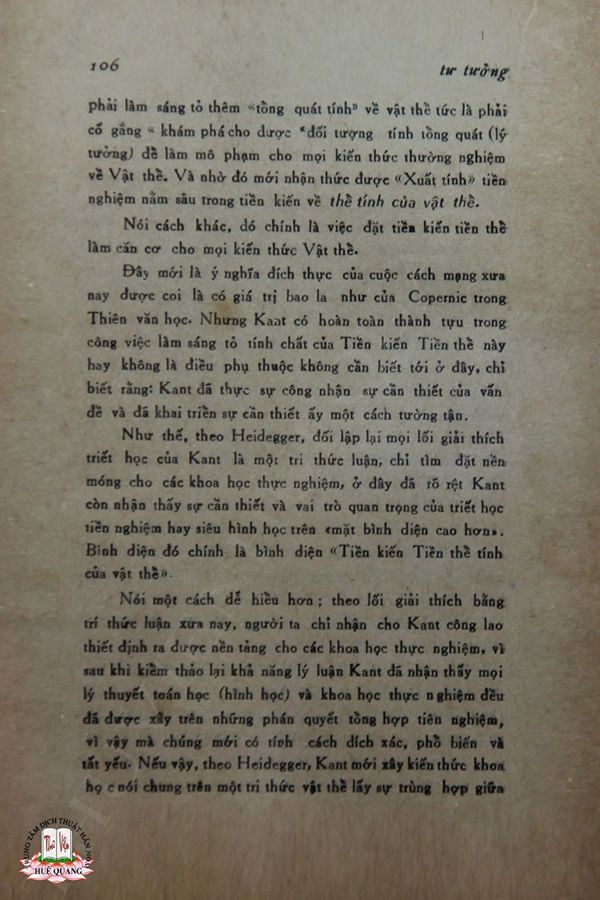 106
tư tưởng
phải làm sáng tỏ thêm «tồng quát tính» về vật thề tức là phải
cố gắng « khám phá cho được "đối tượng tính tồng quát (lý
tưởng) đề làm mô phạm cho mọi kiến thức thường nghiệm
về Vật thề. Và nhờ đó mới nhận thức được «Xuất tính» tiền
nghiệm nằm sâu trong tiền kiến về thề tính của vật thề.
Nói cách khác, dó chính là việc đặt tiền kiến tiền thề
làm căn cơ cho mọi kiến thức Vật thề.
Đây mới là ý nghĩa đích thực của cuộc cách mạng xưa
nay được coi là có giá trị bao la như của Copernic trong
Thiên văn học. Nhưng Kant có hoàn toàn thành tựu trong
công việc làm sáng tỏ tính chất của Tiền kiến Tiền thề này
hay không là điều phụ thuộc không cần biết tới ở đây, chỉ
biết rằng: Kant đã thực sự công nhận sự cần thiết của vấn
đề và đã khai triền sự cần thiết ấy một cách tường tận.
Như thế, theo Heidegger, đối lập lại mọi lối giải thích
triết học của Kant là một tri thức luận, chỉ tìm đặt nền
móng cho các khoa học thực nghiệm, ở đây đã rõ rệt Kant
còn nhận thấy sự cần thiết và vai trò quan trọng của triết học
tiền nghiệm hay siêu hình học trên «mặt bình diện cao hơn».
Bình diện đó chính là bình diện «Tiền kiến Tiền thề tính
của vật thề».
Nói một cách dễ hiểu hơn ; theo lối giải thích bằng
trí thức luận xưa nay, người ta chỉ nhận cho Kant công lao
thiết định ra được nền tảng cho các khoa học thực nghiệm, vì
sau khi kiềm thảo lại khả năng lý luận Kant đã nhận thấy mọi
lý thuyết toán học (hình học) và khoa học thực nghiệm đều
đã được xây trên những phán quyết tồng hợp tiên nghiệm,
vì vậy mà chúng mới có tính cách đích xác, phồ biến và
tất yếu. Nếu vậy, theo Heidegger, Kant mới xây kiến thức khoa
học nói chung trên một tri thức vật thề lấy sự trùng hợp giữa
TRUNG TÂM DỊCH THUẬT HÁN NÔM
HUỆ QUANG